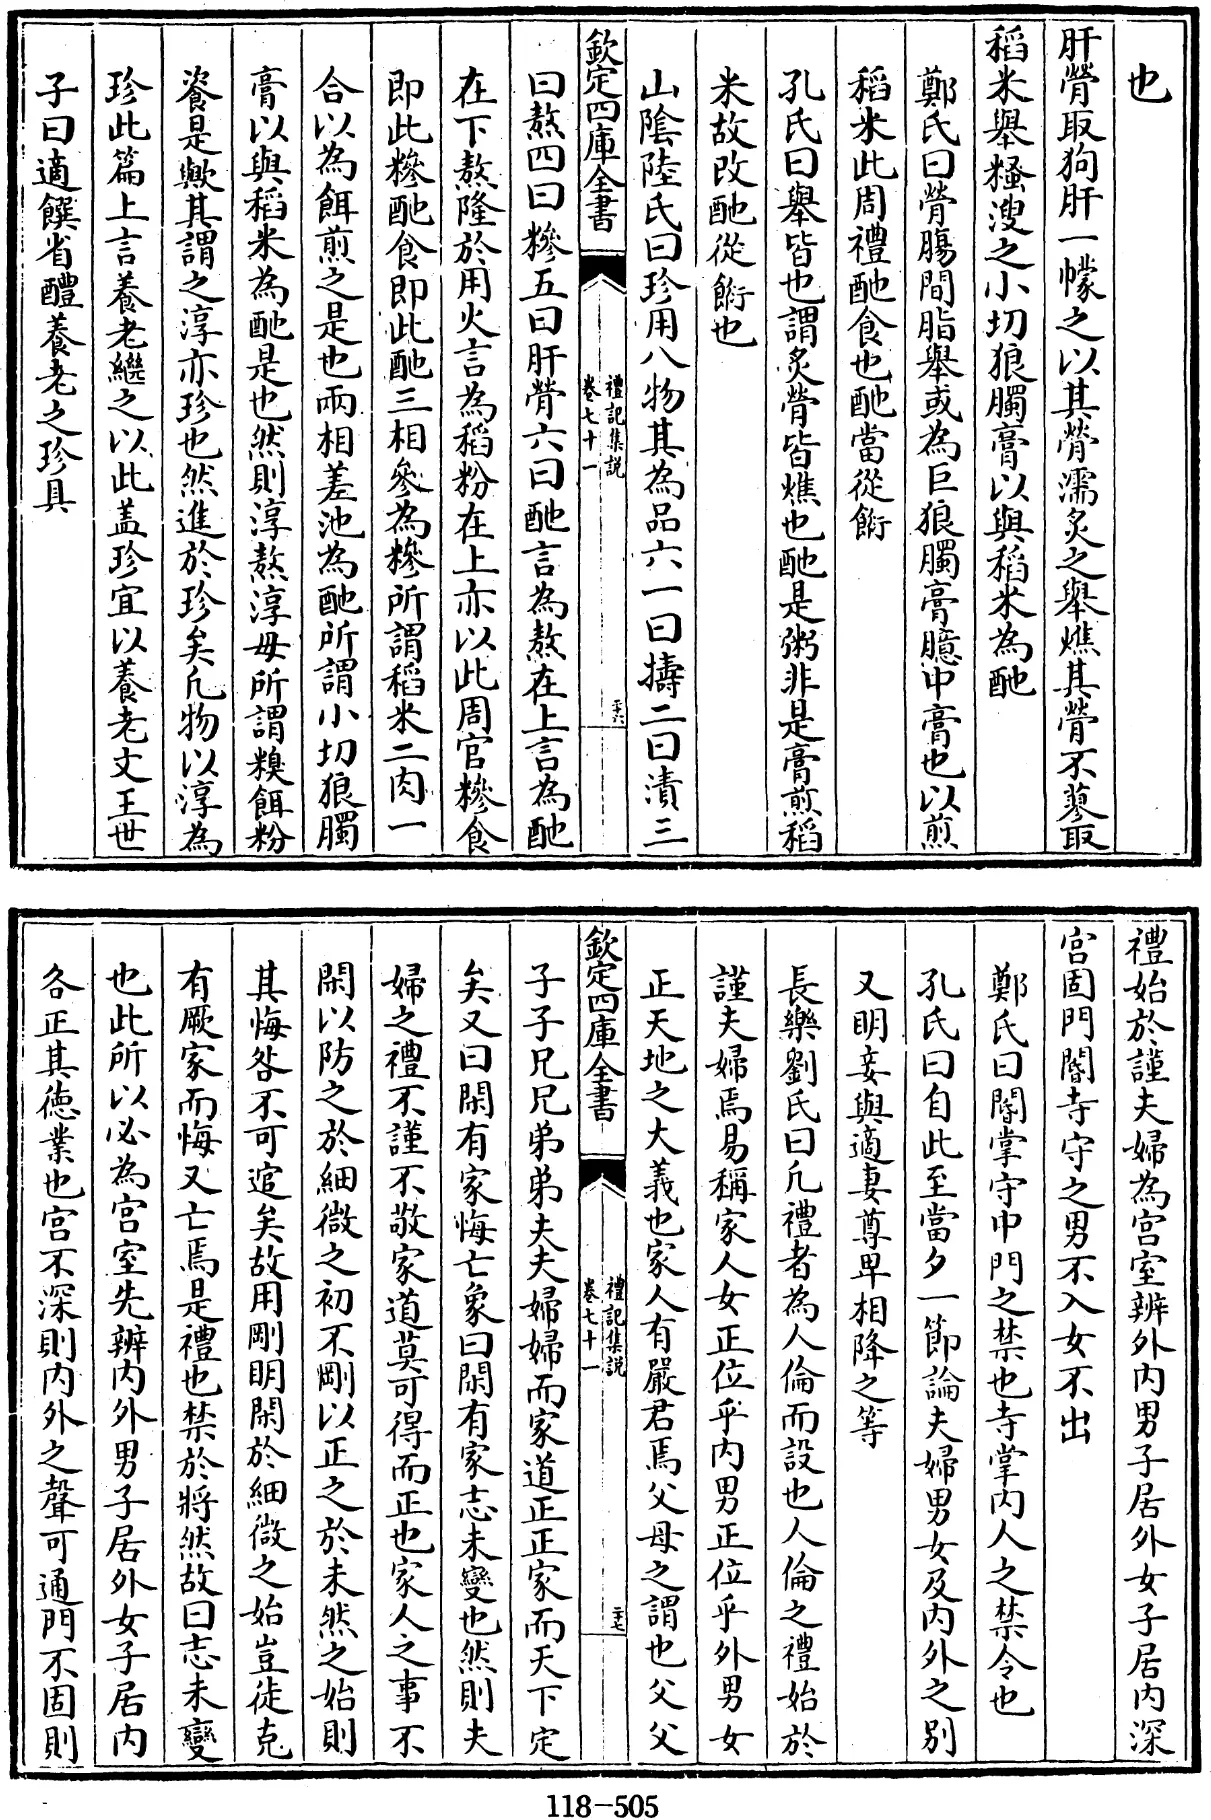 也
肝膋取狗肝一幪之以其膋濡炙之舉燋其膋不蓼取
稻米舉糔溲之小切狼臅膏以與稻米為酏
鄭氏曰膋腸間脂舉或為巨狼臅膏臆中膏也以煎
稻米此周禮酏食也酏當從餰
孔氏曰舉皆也謂炙膋皆燋也酏是粥非是膏煎稻
米故改酏從餰也
山陰陸氏曰珍用八物其為品六一曰擣二曰漬三
欽定四庫全書
禮記集說
卷七十一
二十六
曰熬四曰糝五曰肝膋六曰酏言為熬在上言為酏
在下熬隆於用火言為稻粉在上亦以此周官糝食
即此糝酏食即此酏三相參為糝所謂稻米二肉一
合以為餌煎之是也兩相差池為酏所謂小切狼臅
膏以與稻米為酏是也然則淳熬淳毋所謂糗餌粉
餈是歟其謂之淳亦珍也然進於珍矣凡物以淳為
珍此篇上言養老繼之以此盖珍宜以養老文王世
子曰適饌省醴養老之珍具
禮始於謹夫婦為宫室辨外内男子居外女子居内深
宫固門閽寺守之男不入女不出
鄭氏曰閽掌守中門之禁也寺掌内人之禁令也
孔氏曰自此至當夕一節論夫婦男女及内外之别
又明妾與適妻尊卑相降之等
長樂劉氏曰凡禮者為人倫而設也人倫之禮始於
謹夫婦焉易稱家人女正位乎内男正位乎外男女
正天地之大義也家人有嚴君焉父母之謂也父父
欽定四庫全書
禮記集說
卷七十一
二十七
子子兄兄弟弟夫夫婦婦而家道正正家而天下定
矣又曰閑有家悔亡象曰閑有家志未變也然則夫
婦之禮不謹不敬家道莫可得而正也家人之事不
閑以防之於細微之初不剛以正之於未然之始則
其悔咎不可追矣故用剛明閑於細微之始豈徒克
有厥家而悔又亡焉是禮也禁於將然故曰志未變
也此所以必為宫室先辨内外男子居外女子居内
各正其德業也宫不深則内外之聲可通門不固則
118-505